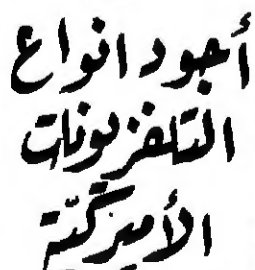 أجود انواع
التلفزيونات
الأميركيّة